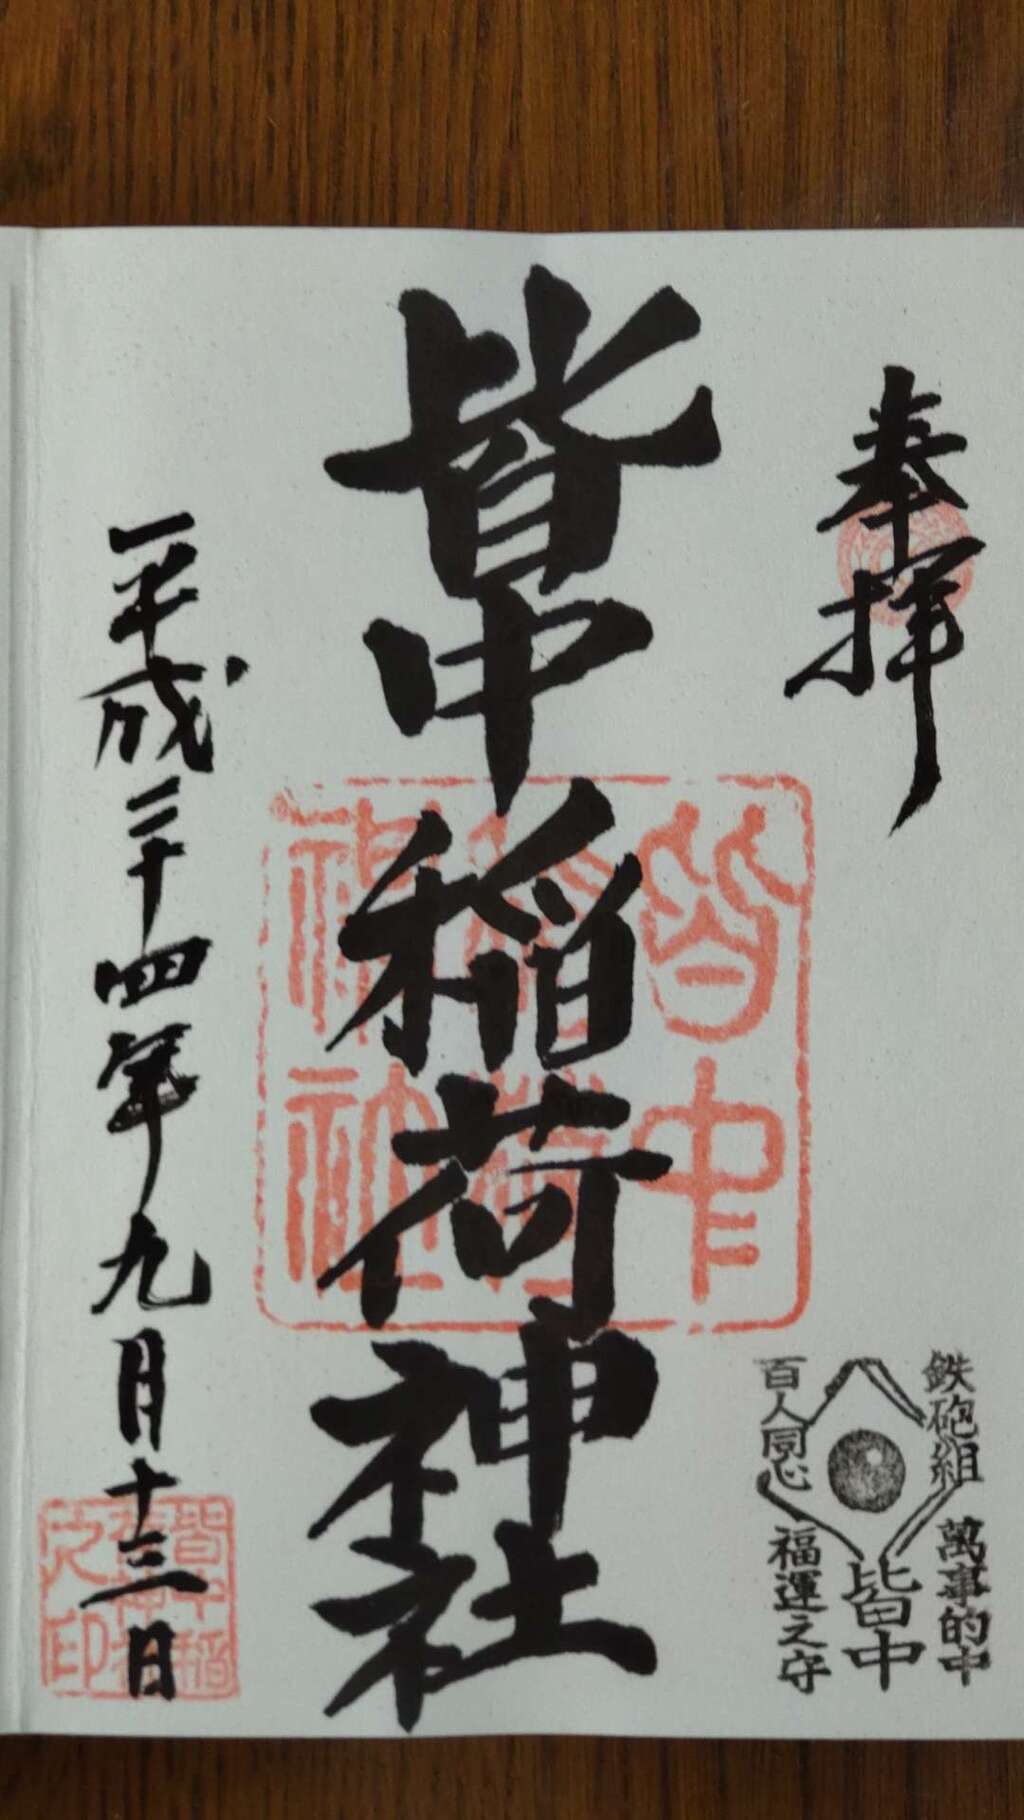 奉拝
鉄砲組
百人同心
萬事的中
皆中
福運之守
皆中稲荷神社
皆中
神社
平成二十四年九月十三日
之印